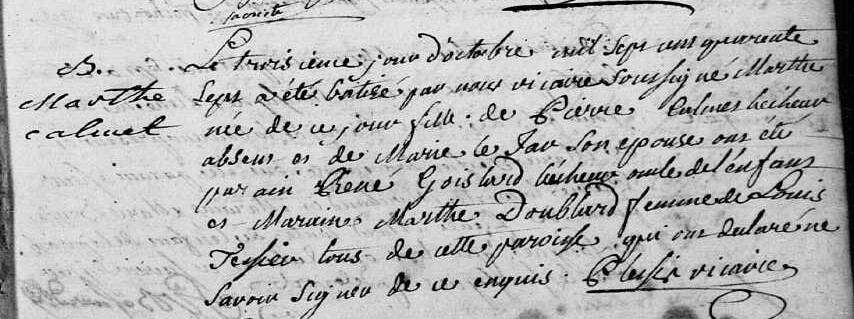 B.
Marthe
calmet
Le troisieme jour d'octobre mil sept cens quarente
sept a été batisé par nous vicaire soussigné Marthe
née de ce jour fille de Pierre Calmet bécheur
absent et de Marie le Jau son epouse ont été
parain René Goislard bécheur oncle de l'enfant
et Maraine Marthe Doublard femme de Louis
Tessier tous de cette paroisse qui ont declaré ne
savoir signer de ce enquis. Plessis vicaire